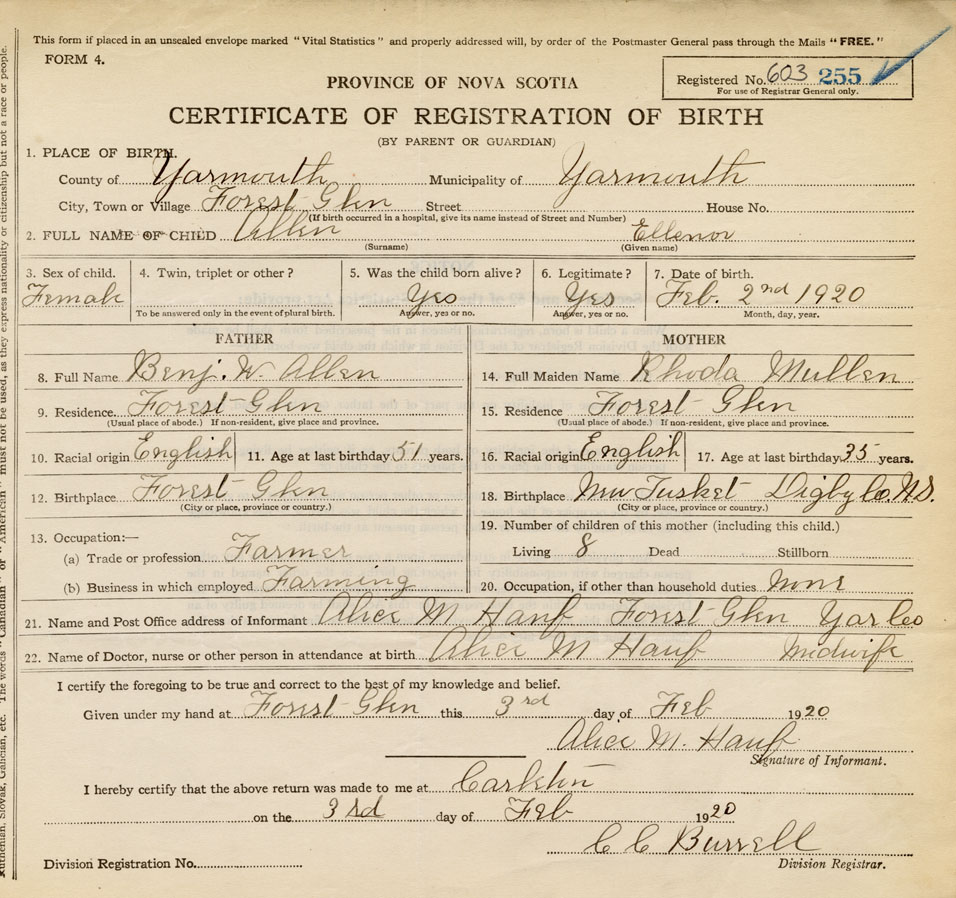 This form if placed in an unsealed envelope marked "Vital Statistics" and properly addressed will, by order of the Postmaster General pass through the Mails "FREE."
FORM 4.
Registered No. 603 255
For use of Registrar General only.
PROVINCE OF NOVA SCOTIA
CERTIFICATE OF REGISTRATION OF BIRTH
(BY PARENT OR GUARDIAN)
1. PLACE OF BIRTH.
County of Yarmouth Municipality of Yarmouth
City, Town or Village Forest Glen Street House No.
(If birth occurred in a hospital, give its name instead of Street and Number)
2. FULL NAME OF CHILD Allen Ellenor
(Surname) (Given name)
3. Sex of child. 4. Twin, triplet or other? 5. Was the child born alive? 6. Legitimate? 7. Date of birth.
Female Yes Yes Feb. 2nd 1920
To be answered only in the event of plural birth. Answer, yes or no. Answer, yes or no. Month, day, year.
FATHER MOTHER
8. Full Name Benj. W. Allen 14. Full Maiden Name Rhoda Mullen
9. Residence Forest Glen 15. Residence Forest Glen
(Usual place of abode.) If non-resident, give place and province. (Usual place of abode.) If non-resident, give place and province.
10. Racial origin English 11. Age at last birthday 51 years. 16. Racial origin English 17. Age at last birthday 35 years.
12. Birthplace Forest Glen 18. Birthplace New Tusket Digby Co N.S.
(City or place, province or country.) (City or place, province or country.)
13. Occupation:— 19. Number of children of this mother (including this child.)
(a) Trade or profession Farmer Living 8 Dead Stillborn
(b) Business in which employed Farming 20. Occupation, if other than household duties None
21. Name and Post Office address of Informant Alice M Hauf Forest Glen Yar Co
22. Name of Doctor, nurse or other person in attendance at birth Alice M Hauf Midwife
I certify the foregoing to be true and correct to the best of my knowledge and belief.
Given under my hand at Forest Glen this 3rd day of Feb 1920
Alice M. Hauf
Signature of Informant.
I hereby certify that the above return was made to me at Carleton
on the 3rd day of Feb 1920
C C Burrell
Division Registration No. Division Registrar.
Ruthenian, Slovak, Galician, etc. The words "Canadian" or "American" must not be used, as they express nationality or citizenship but not a race or people.